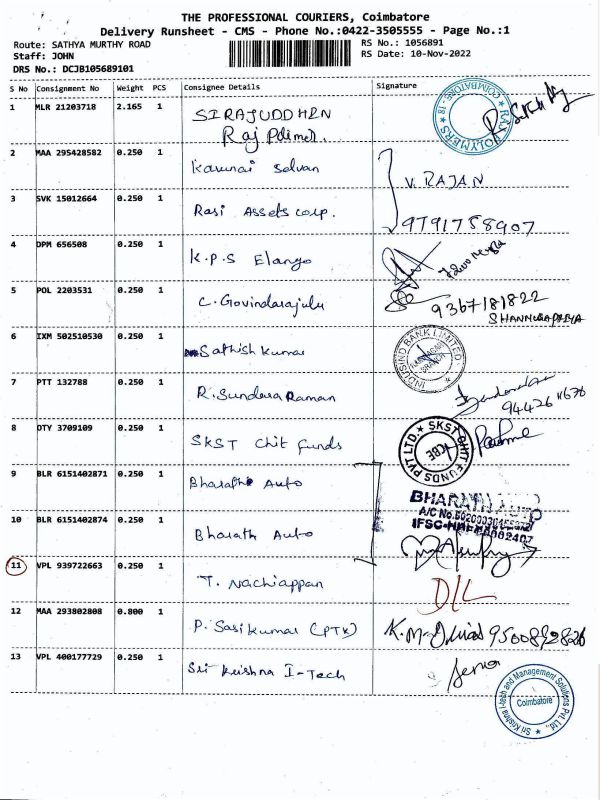 THE PROFESSIONAL COURIERS, Coimbatore
Delivery Runsheet - CMS - Phone No.:0422-3505555 - Page No.:1
Route: SATHYA MURTHY ROAD
RS No.: 1056891
Staff: JOHN
RS Date: 10-Nov-2022
DRS No.: DCJB105689101
S No Consignment No Weight PCS Consignee Details Signature
1 MLR 21203718 2.165 1 SIRAJUDDHEN
Raj Polimer.
RAJ POLYMERS COIMBATORE - 18
2 MAA 295428582 0.250 1 Karunai Selvan
V. RAJAN
3 SVK 15012664 0.250 1 Rasi Assets corp.
9791758907
4 DPM 656508 0.250 1 K.P.S Elango
5 POL 2203531 0.250 1 C. Govindarajulu
9367181822
6 IXM 502510530 0.250 1 Sathish kumar
INDUSIND BANK LIMITED
BRANCH
7 PTT 132788 0.250 1 R. Sundara Raman
8 OTY 3709109 0.250 1 SKST Chit Funds
SKST CHIT FUNDS PVT LTD.
CBE
9 BLR 6151402871 0.250 1 Bharath Auto
BHARATH AUTO
A/C No.
IFSC-
10 BLR 6151402874 0.250 1 Bharath Auto
11 VPL 939722663 0.250 1 T. Nachiappan
D/L
12 MAA 293802808 0.800 1 P. Sasikumar (PTK)
K.M. 9500892826
13 VPL 400177729 0.250 1 Sri Krishna I-Tech
Sri Krishna I-tech and Management Solutions Pvt. Ltd.
Coimbatore